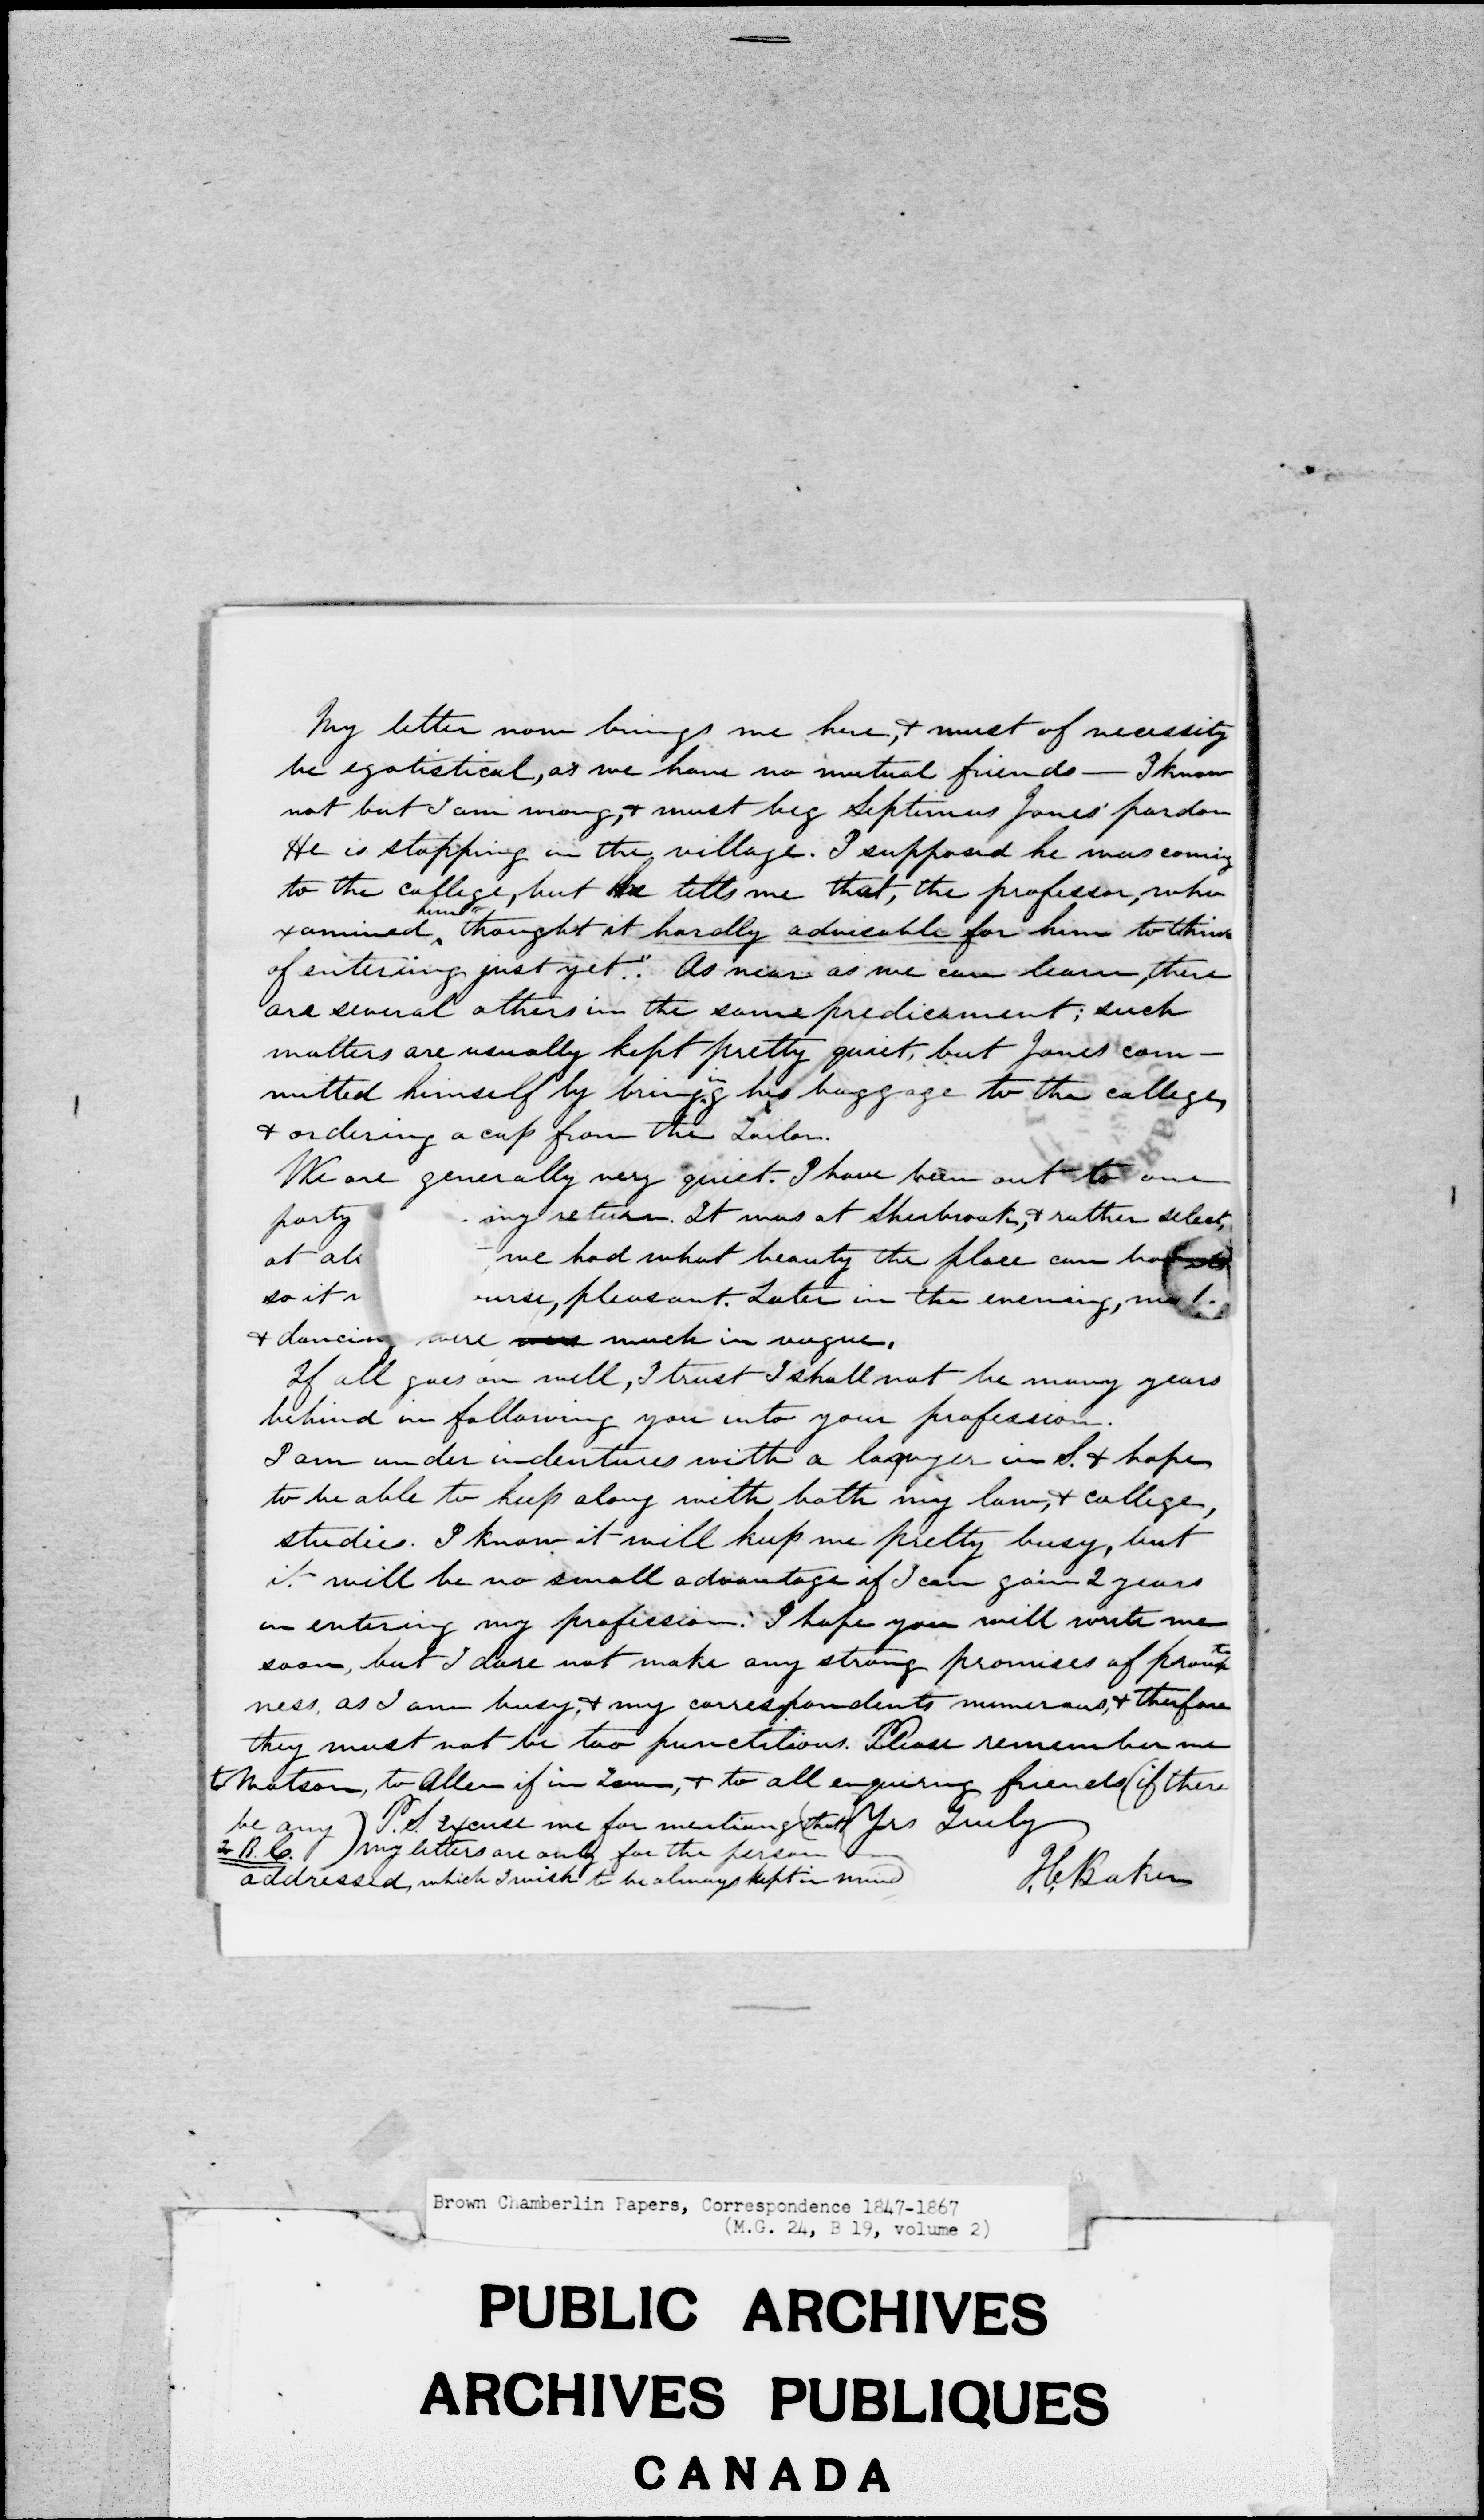 My letter now brings me here, & must of necessity
be egotistical, as we have no mutual friends — I know
not but I am wrong, & must beg Septimus Jones' pardon
He is stopping in the village. I supposed he was coming
to the college, but he tells me that, the professor, who
examined him "thought it hardly advisable for him to think
of enteriing just yet." As near as we can learn, there
are several others in the same predicament; such
matters are usually kept pretty quiet, but Jones com-
mitted himself by bringing his baggage to the college,
& ordering a cap from the Tailor.
We are generally very quiet. I have been out to one
party my return. It was at Sherbrooke, & rather select,
at we had what beauty the place can
so it urse, pleasant. Later in the evening,
& dancing were were much in vogue.
If all goes on well, I trust I shall not be many years
behind in following you into your profession.
I am under indentures with a lawyer in S. & hope
to be able to keep along with both my law, & college,
studies. I know it will keep me pretty busy, but
it will be no small advantage if I can gain 2 years
in entering my profession. I hope you will write me
soon, but I dare not make any strong promises of prompt
ness, as I am busy, & my correspondents numerous, & therfore
they must not be too punctitious. Please remember me
to Watson, to Allen if in Town, & to all enquiring friends (if there
be any) P.S. Excuse me for mentiong (that) Yrs Truly
To B.C. my letters are only for the person
addressed, which I wish to be always kept in mind
H.C. Baker
Brown Chamberlin Papers, Correspondence 1847-1867
(M.G. 24, B 19, volume 2)
PUBLIC ARCHIVES
ARCHIVES PUBLIQUES
CANADA